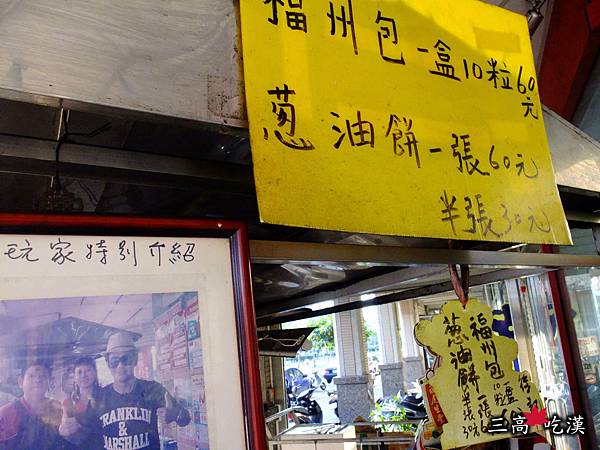 福州包一盒10粒60元
蔥油餅一張60元
半張30元
玩家特別介紹
FRANKLIN &
MARSHALL
福州包10粒
蔥油餅一張
半張30
三高 吃漢